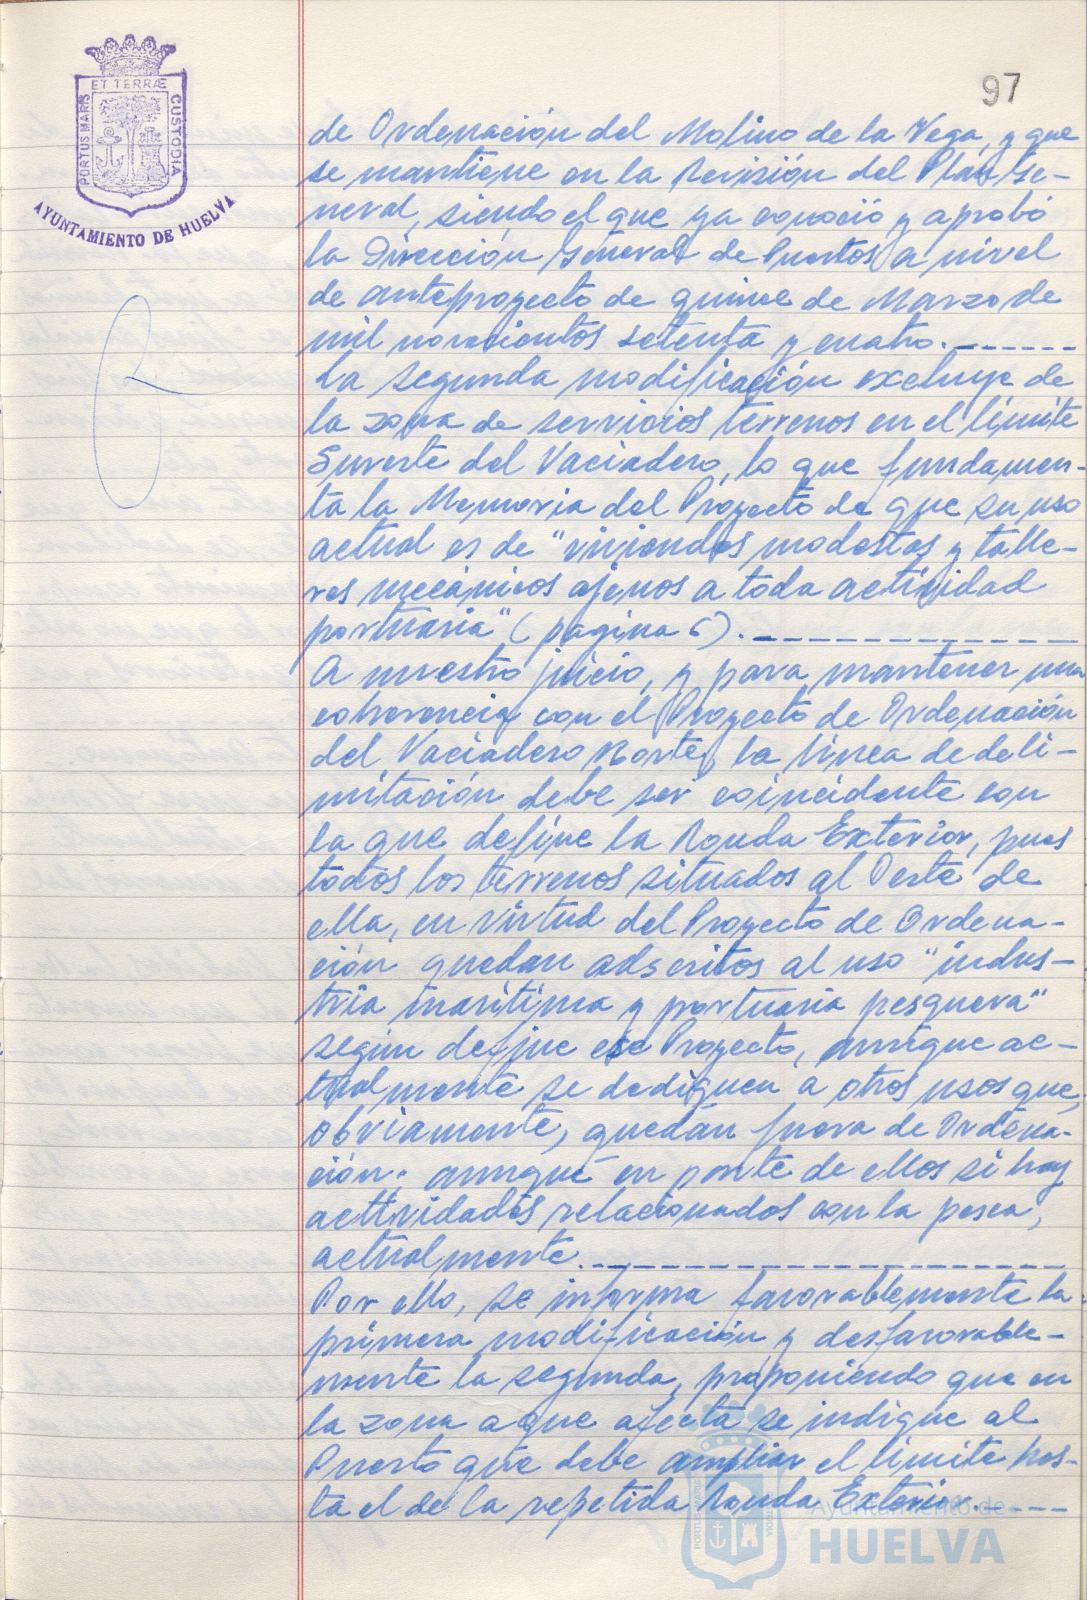 97
PORTUS MARIS ET TERRÆ CUSTODIA
AYUNTAMIENTO DE HUELVA
de Ordenación del Molino de la Vega, y que
se mantiene en la Revisión del Plan Ge-
neral, siendo el que ya conoció y aprobó
la Dirección General de Puertos a nivel
de anteproyecto de quince de Marzo de
mil novecientos setenta y cuatro.
La segunda modificación excluye de
la zona de servicios terrenos en el límite
Sureste del Vaciadero, lo que fundamen-
ta la Memoria del Proyecto de que su uso
actual es de "viviendas modestas y talle-
res mecánicos ajenos a toda actividad
portuaria" (página 6).
A nuestro juicio, y para mantener una
coherencia con el Proyecto de Ordenación
del Vaciadero Norte, la línea de deli-
mitación debe ser coincidente con
la que define la Ronda Exterior, pues
todos los terrenos situados al Oeste de
ella, en virtud del Proyecto de Ordena-
ción quedan adscritos al uso "indus-
tria marítima y portuaria pesquera"
según define ese Proyecto, aunque ac-
tualmente se dediquen a otros usos que,
obviamente, quedan fuera de Ordena-
ción; aunque en parte de ellos si hay
actividades relacionados con la pesca,
actualmente.
Por ello, se informa favorablemente la
primera modificación y desfavorable-
mente la segunda, proponiendo que en
la zona a que afecta se indique al
Puerto que debe ampliar el límite has-
ta el de la repetida Ronda Exterior.
Ayuntamiento de
HUELVA